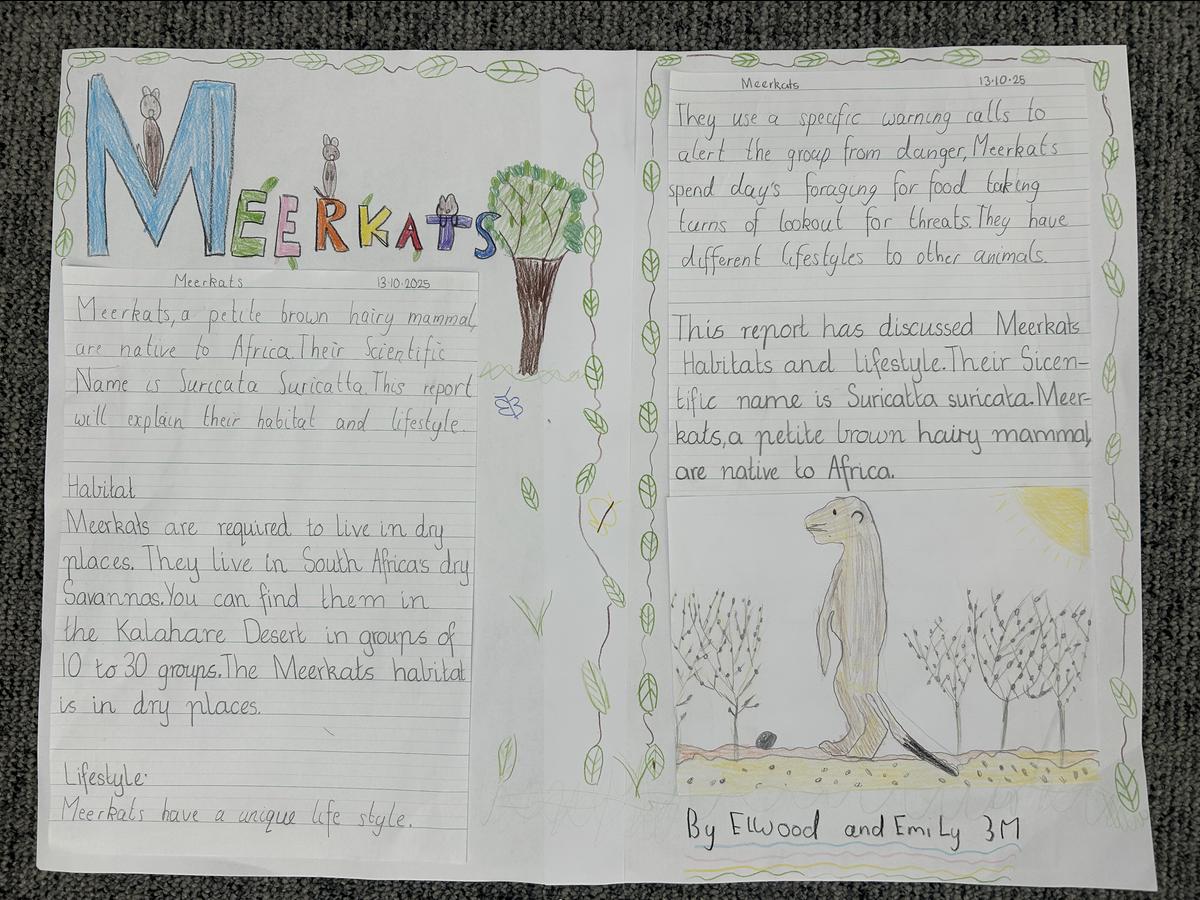 MEERKATS
Meerkats 13·10·2025
Meerkats, a petite brown hairy mammal,
are native to Africa. Their Scientific
Name is Suricata Suricatta. This report
will explain their habitat and lifestyle.
Habitat
Meerkats are required to live in dry
places. They live in South Africa's dry
Savannas. You can find them in
the Kalahare Desert in groups of
10 to 30 groups. The Meerkats habitat
is in dry places.
Lifestyle·
Meerkats have a unique life style.
Meerkats 13·10·25
They use a specific warning calls to
alert the group from danger, Meerkats
spend day's foraging for food taking
turns of lookout for threats. They have
different lifestyles to other animals.
This report has discussed Meerkats
Habitats and lifestyle. Their Sicen-
tific name is Suricatta suricata. Meer-
kats, a petite brown hairy mammal,
are native to Africa.
By Ellwood and Emily 3M